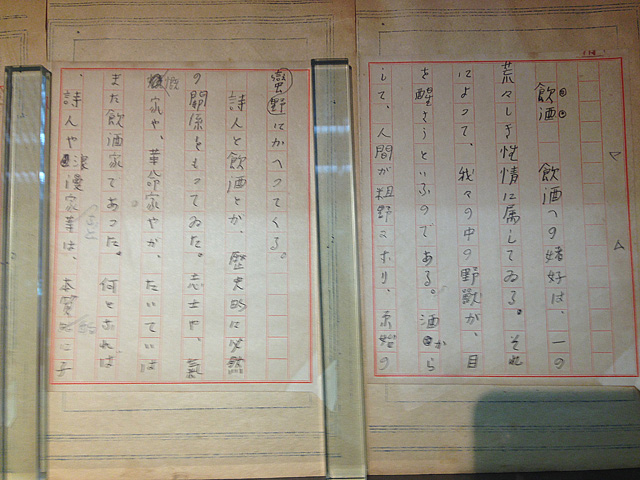 飲酒 飲酒への嗜好は、一の
荒々しき性情に属してゐる。それ
によつて、我々の中の野獣が、目
を醒さうといふのである。酒から
して、人間が粗野になり、原始の
蠻野にかへつてくる。
詩人と飲酒とが、歴史的に必然
の関係をもつてゐた。志士や、慷
慨家や、革命家やが、たいていは
また飲酒家であつた。何となれば
詩人や浪漫家等は、本質的に